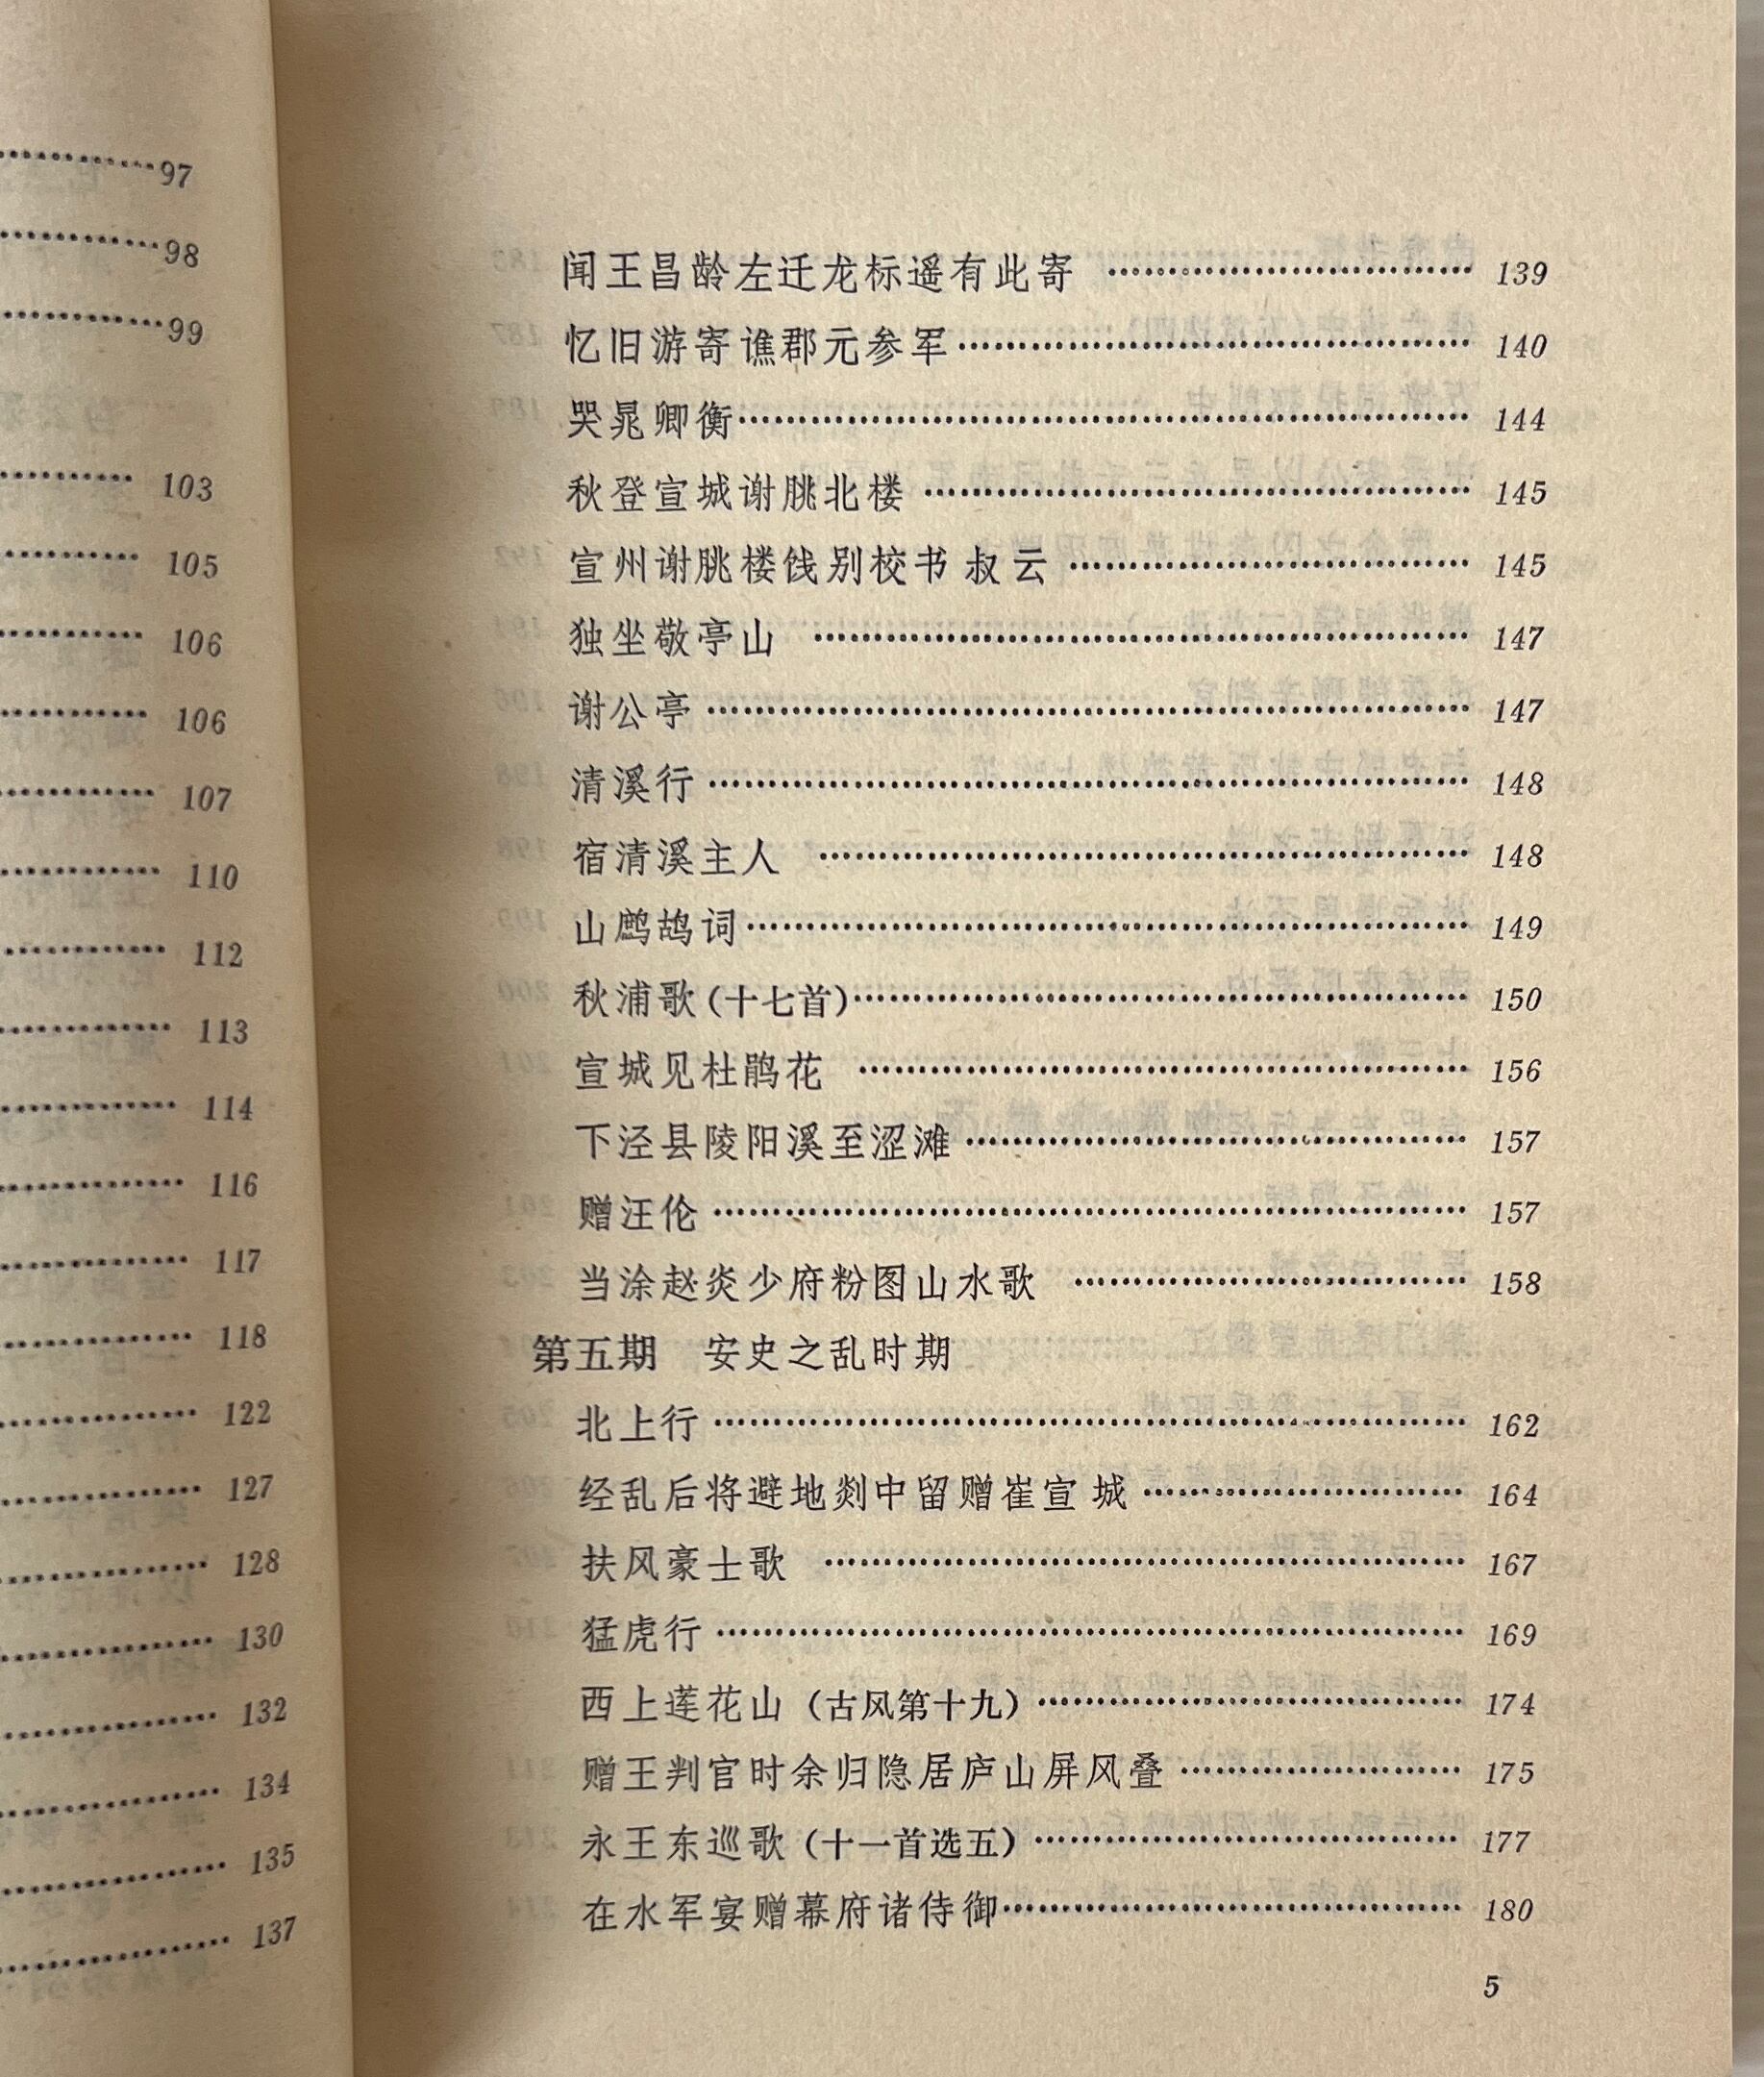 ……97
……98
……99
……103
……105
……106
……106
……107
……110
……112
……113
……114
……116
……117
……118
……122
……127
……128
……130
……132
……134
……135
……137
闻王昌龄左迁龙标遥有此寄……139
忆旧游寄谯郡元参军……140
哭晁卿衡……144
秋登宣城谢朓北楼……145
宣州谢朓楼饯别校书叔云……145
独坐敬亭山……147
谢公亭……147
清溪行……148
宿清溪主人……148
山鹧鸪词……149
秋浦歌(十七首)……150
宣城见杜鹃花……156
下泾县陵阳溪至涩滩……157
赠汪伦……157
当涂赵炎少府粉图山水歌……158
第五期 安史之乱时期
北上行……162
经乱后将避地剡中留赠崔宣城……164
扶风豪士歌……167
猛虎行……169
西上莲花山(古风第十九)……174
赠王判官时余归隐居庐山屏风叠……175
永王东巡歌(十一首选五)……177
在水军宴赠幕府诸侍御……180
5